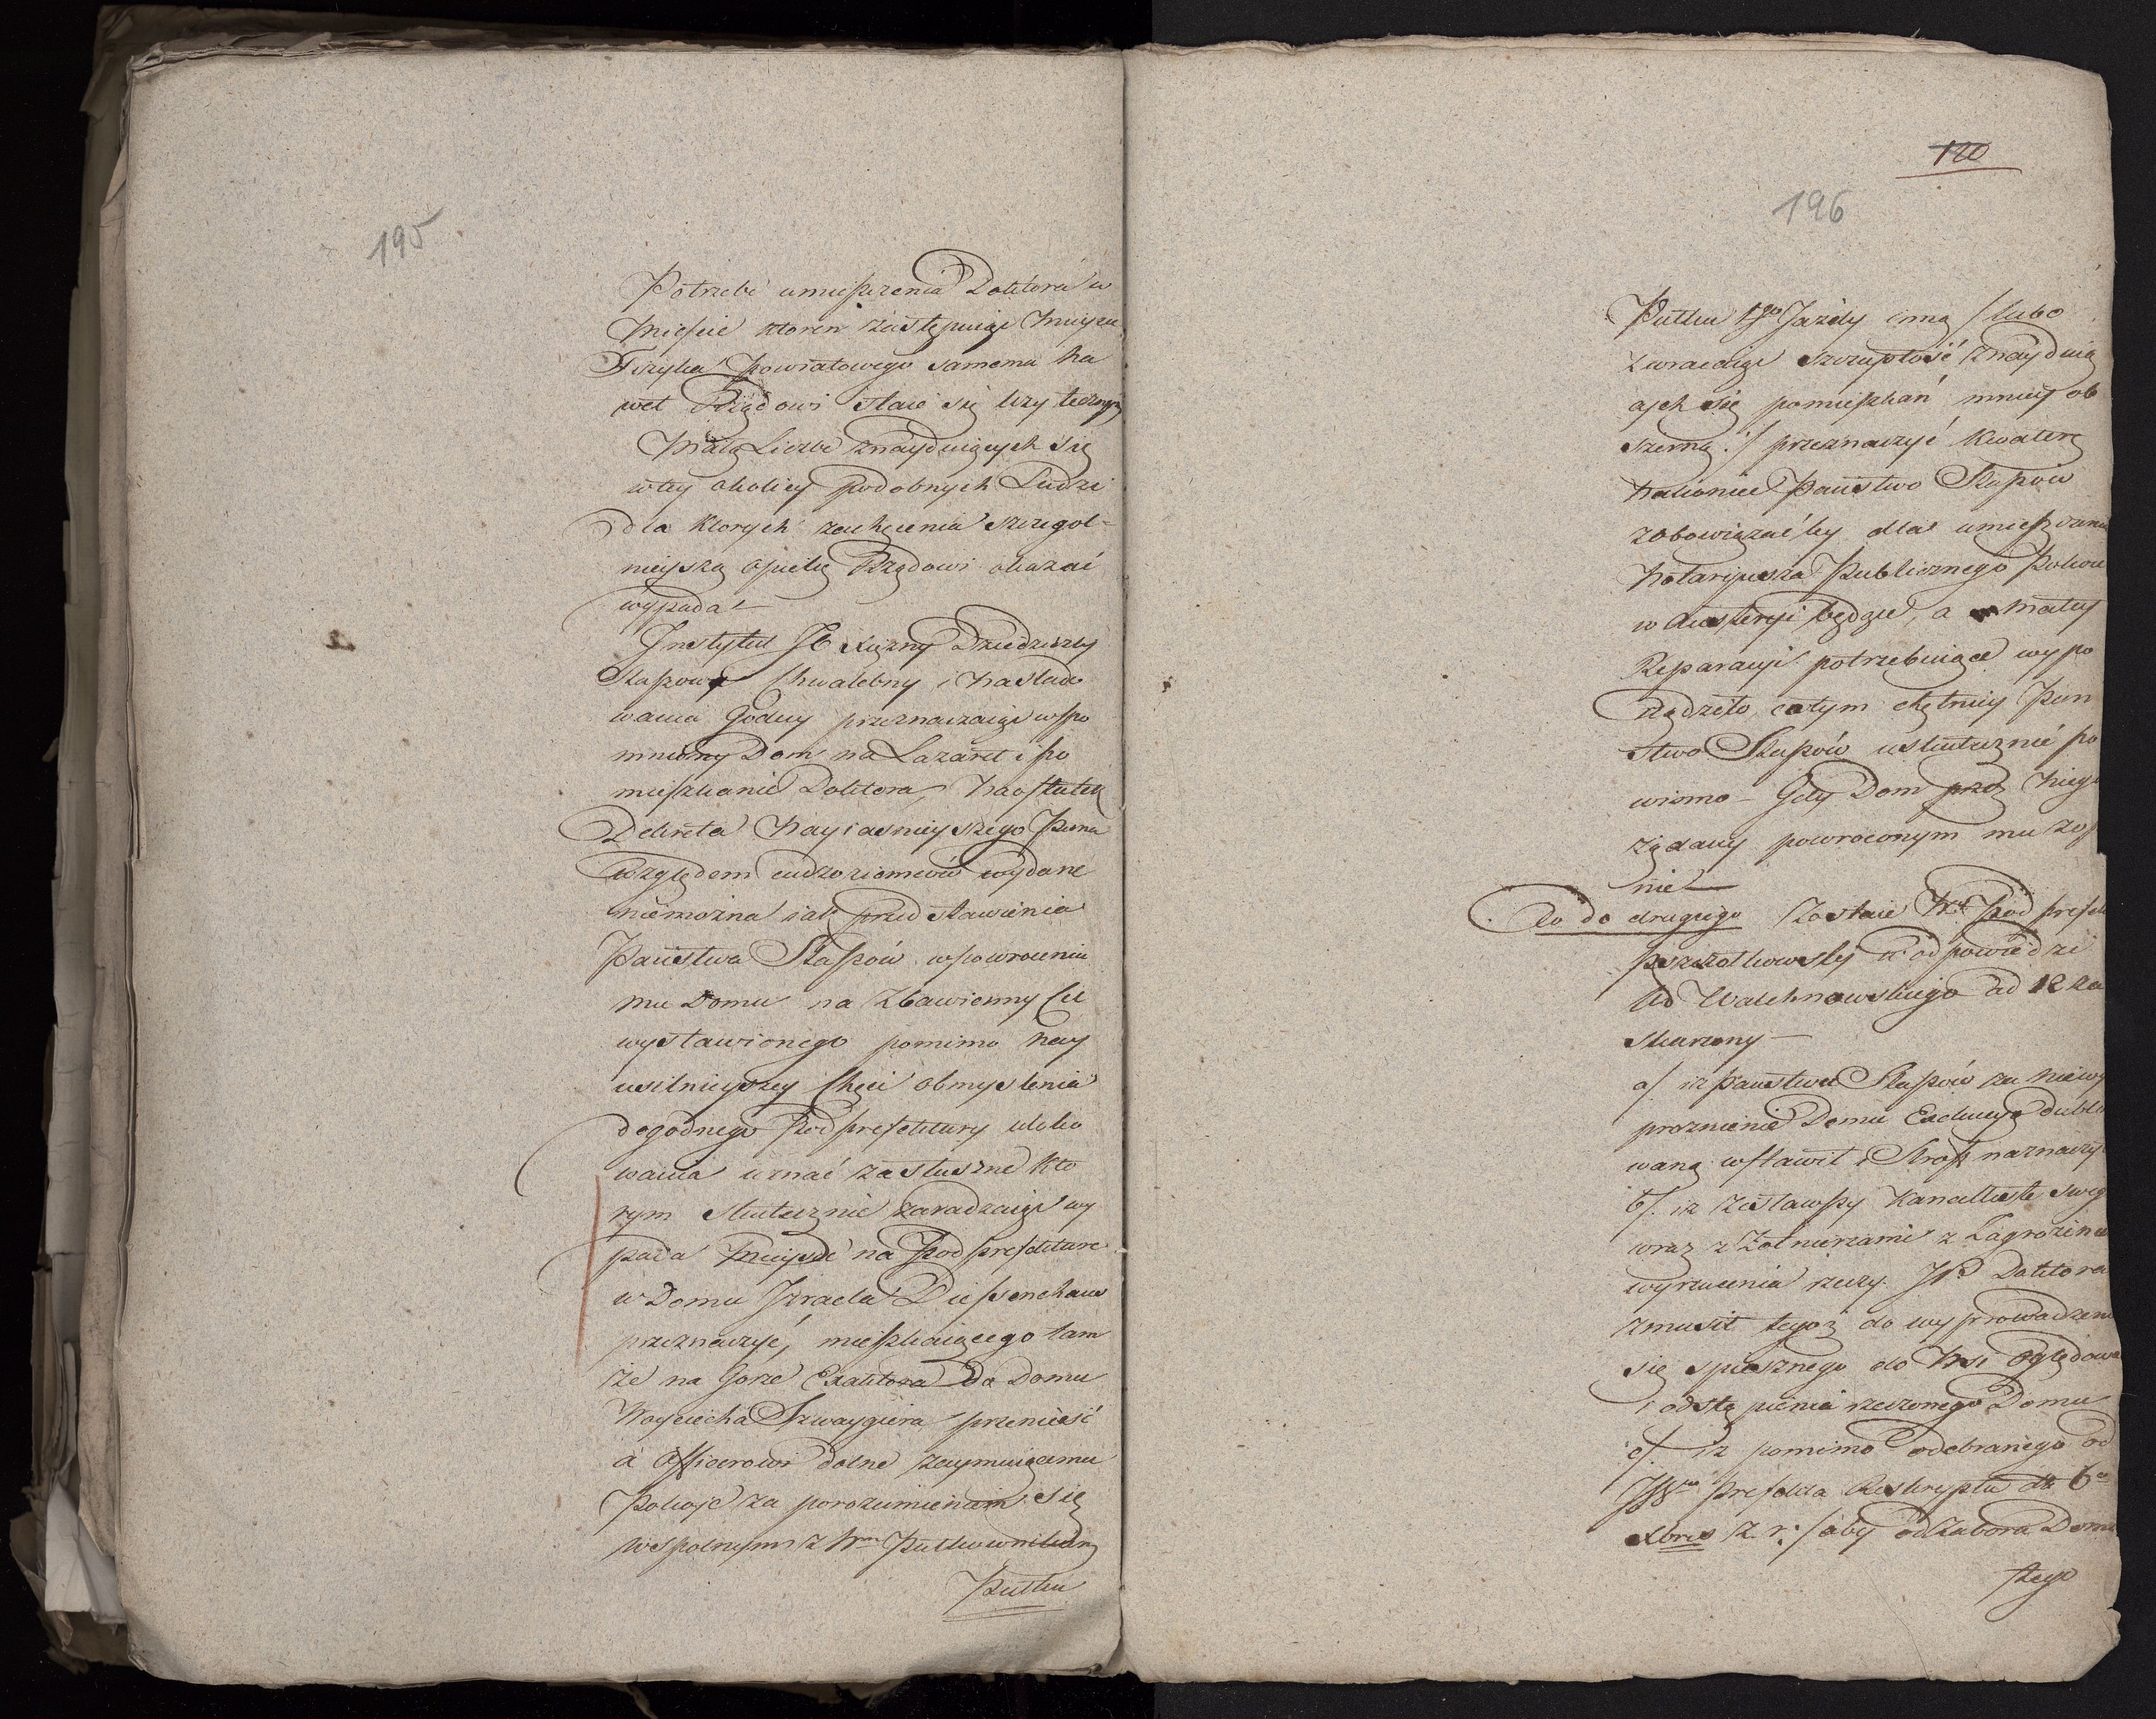 195
Potrzebę umieszczenia Doktora w
Mieście ktoren zastępuiąc Mieysce
Fizyka Powiatowego samemu na
wet Rządowi staie się użytecznym
Małą Liczbę znayduiących się
w tey okolicy podobnych Ludzi
dla ktorych zachęcenia szczegol-
nieyszą opiekę Rządowi okazać
wypada –
Instytut JO Xiężny Dziedziczki
Staszowa Chwalebny i Naslado
wania Godny przeznaczaiąc wspo
mniony Dom na Lazaret i po
mieszkanie Doktora, Na skutek
Dekreta Nayiasnieyszego Pana
względem cudzoziemców wydane
niemożna iak przedstawienia
Państwa Stapów w powroceniu
mu Domu na Zbawienny Cel
wystawionego pomimo nay
usilnieyszey Chęci obmyslenia
dogodnego Podprefektury uloko
wania uznać za słuszne kto
rym skutecznie zaradzaiąc wy
pada Mieysce na Podprefekture
w Domu Izraela
przeznaczyć, mieszkaiącego tam
że na Gorze Exaktora do Domu
Woyciecha Szwaygiera przenieść
a Officerowi dolne zaymuiącemu
Pokoje za porozumieniem się
wspolnym z Wm Pułkownikiem
Pułku
120
196
Pułku 1go Jazdy inną /lubo
zwracaiąc szczupłość znayduią
cych się pomieszkań mniey ob
szerną:/ przeznaczyć kwaterę
nakoniec Państwo Stapów
zobowiązać by dla umieszczenia
Notaryusza Publicznego Pokoie
w Austeryi będące, a małey
Reparacyi potrzebuiące wypo
rządziło, co tym chętniey Pań
stwo Stapów uskutecznić po
winno – Gdy Dom przez niego
żądany powroconym mu zosta
nie –
Co do drugiego Zostaie W. Podprefekt
w odpowiedzi
Ur Walchnowskiego ad 12 za
skarżony –
a/ iż Państwu Stapów za niewy
proznienie Domu Exekucyą dublo
waną wstawił i Strosz naznaczył
b/. iż zesławszy Kancellistę swego
wraz z Żołnierzami z Zagrożeniem
wyrzucenia rzeczy JP. Doktora
zmusił tegoż do wyprowadzenia
się spiesznego do Wsi Oględowa
i odstąpienia rzeczonego Domu
c/. iż pomimo odebranego od
JW Prefekta Reskryptu dto 6o
Xbris z. r: /aby od Zaboru Domu
tego